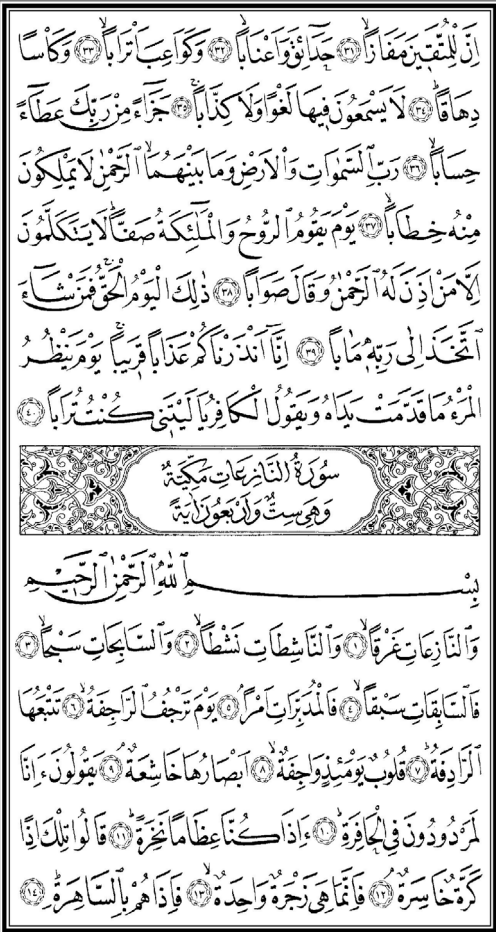 اِنَّ لِلْمُتَّق۪ينَ مَفَازاًۙ ﴿٣١﴾ حَدَٓائِقَ وَاَعْنَاباًۙ ﴿٣٢﴾ وَكَوَاعِبَ اَتْرَاباًۙ ﴿٣٣﴾ وَكَأْساً
دِهَاقاًۜ ﴿٣٤﴾ لَا يَسْمَعُونَ ف۪يهَا لَغْواً وَلَا كِذَّاباًۚ ﴿٣٥﴾ جَزَٓاءً مِنْ رَبِّكَ عَطَٓاءً
حِسَاباًۙ ﴿٣٦﴾ رَبِّ السَّمٰوَاتِ وَالْاَرْضِ وَمَا بَيْنَهُمَا الرَّحْمٰنِ لَا يَمْلِكُونَ
مِنْهُ خِطَاباًۚ ﴿٣٧﴾ يَوْمَ يَقُومُ الرُّوحُ وَالْمَلٰٓئِكَةُ صَفاًّۜ لَا يَتَكَلَّمُونَ
اِلَّا مَنْ اَذِنَ لَهُ الرَّحْمٰنُ وَقَالَ صَوَاباً ﴿٣٨﴾ ذٰلِكَ الْيَوْمُ الْحَقُّۚ فَمَنْ شَٓاءَ
اتَّخَذَ اِلٰى رَبِّه۪ مَاٰباً ﴿٣٩﴾ اِنَّٓا اَنْذَرْنَاكُمْ عَذَاباً قَر۪يباًۚ يَوْمَ يَنْظُرُ
الْمَرْءُ مَا قَدَّمَتْ يَدَاهُ وَيَقُولُ الْكَافِرُ يَا لَيْتَن۪ي كُنْتُ تُرَاباً ﴿٤٠﴾
سُورَةُ النَّازِعَاتِ مَكِّيَّةٌ
وَهِيَ سِتٌّ وَاَرْبَعُونَ اٰيَةً
بِسْمِ اللّٰهِ الرَّحْمٰنِ الرَّح۪يمِ
وَالنَّازِعَاتِ غَرْقاًۙ ﴿١﴾ وَالنَّاشِطَاتِ نَشْطاًۙ ﴿٢﴾ وَالسَّابِحَاتِ سَبْحاًۙ ﴿٣﴾
فَالسَّابِقَاتِ سَبْقاًۙ ﴿٤﴾ فَالْمُدَبِّرَاتِ اَمْراًۢ ﴿٥﴾ يَوْمَ تَرْجُفُ الرَّاجِفَةُۙ ﴿٦﴾ تَتْبَعُهَا
الرَّادِفَةُۜ ﴿٧﴾ قُلُوبٌ يَوْمَئِذٍ وَاجِفَةٌۙ ﴿٨﴾ اَبْصَارُهَا خَاشِعَةٌۢ ﴿٩﴾ يَقُولُونَ ءَاِنَّا
لَمَرْدُودُونَ فِي الْحَافِرَةِۜ ﴿١٠﴾ ءَاِذَا كُنَّا عِظَاماً نَخِرَةًۜ ﴿١١﴾ قَالُوا تِلْكَ اِذاً
كَرَّةٌ خَاسِرَةٌۢ ﴿١٢﴾ فَاِنَّمَا هِيَ زَجْرَةٌ وَاحِدَةٌۙ ﴿١٣﴾ فَاِذَا هُمْ بِالسَّاهِرَةِۜ ﴿١٤﴾